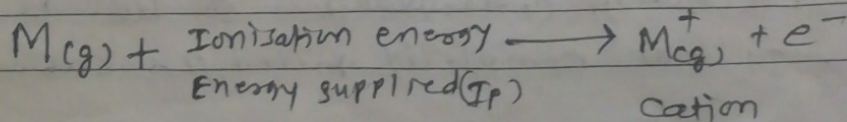 M(g) + Ionisation energy ⟶ M⁺(g) + e⁻
Energy supplired(Ip) Cation